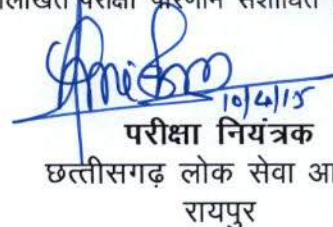 परीक्षा परिणाम संशोधित
10/4/15
परीक्षा नियंत्रक
छत्तीसगढ़ लोक सेवा
रायपुर